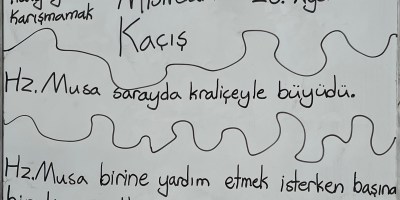 Karışmamak
Kaçış
Hz. Musa sarayda kraliçeyle büyüdü.
Hz. Musa birine yardım etmek isterken başına